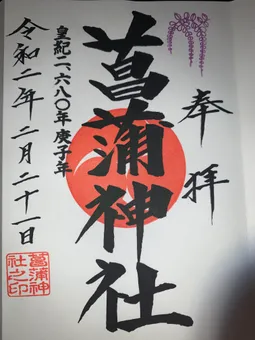 奉拝
菖蒲神社
皇紀二、六八〇年 庚子年
令和二年二月二十一日
菖蒲神
社之印